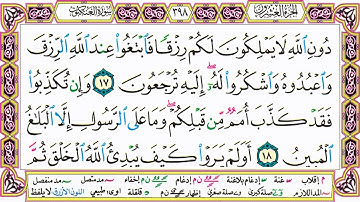 الجزء العشرين ٣٩٨ سورة العنكبوت
دُونِ ٱللَّهِ لَا يَمْلِكُونَ لَكُمْ رِزْقًا فَٱبْتَغُوا۟ عِندَ ٱللَّهِ ٱلرِّزْقَ
وَٱعْبُدُوهُ وَٱشْكُرُوا۟ لَهُۥٓ إِلَيْهِ تُرْجَعُونَ ١٧ وَإِن تُكَذِّبُوا۟
فَقَدْ كَذَّبَ أُمَمٌ مِّن قَبْلِكُمْ وَمَا عَلَى ٱلرَّسُولِ إِلَّا ٱلْبَلَٰغُ
ٱلْمُبِينُ ١٨ أَوَلَمْ يَرَوْا۟ كَيْفَ يُبْدِئُ ٱللَّهُ ٱلْخَلْقَ ثُمَّ